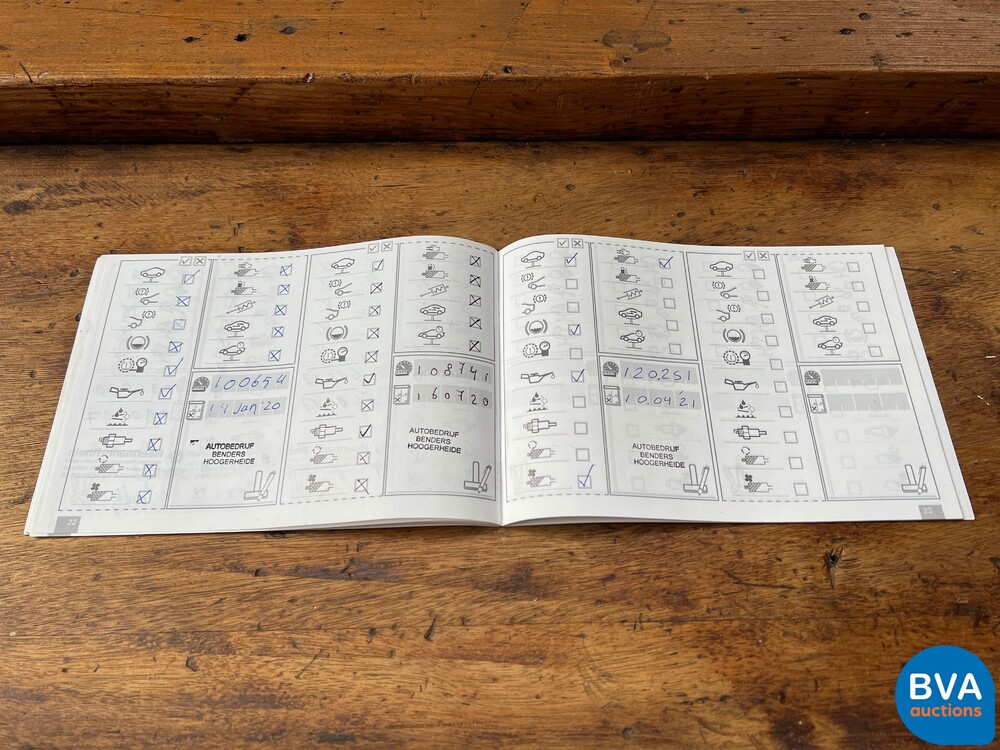 100654
14 Jan '20
AUTOBEDRIJF
BENDERS
HOOGERHEIDE
108741
160720
AUTOBEDRIJF
BENDERS
HOOGERHEIDE
22
120.251
10.04.'21
AUTOBEDRIJF
BENDERS
HOOGERHEIDE
23
BVA
auctions